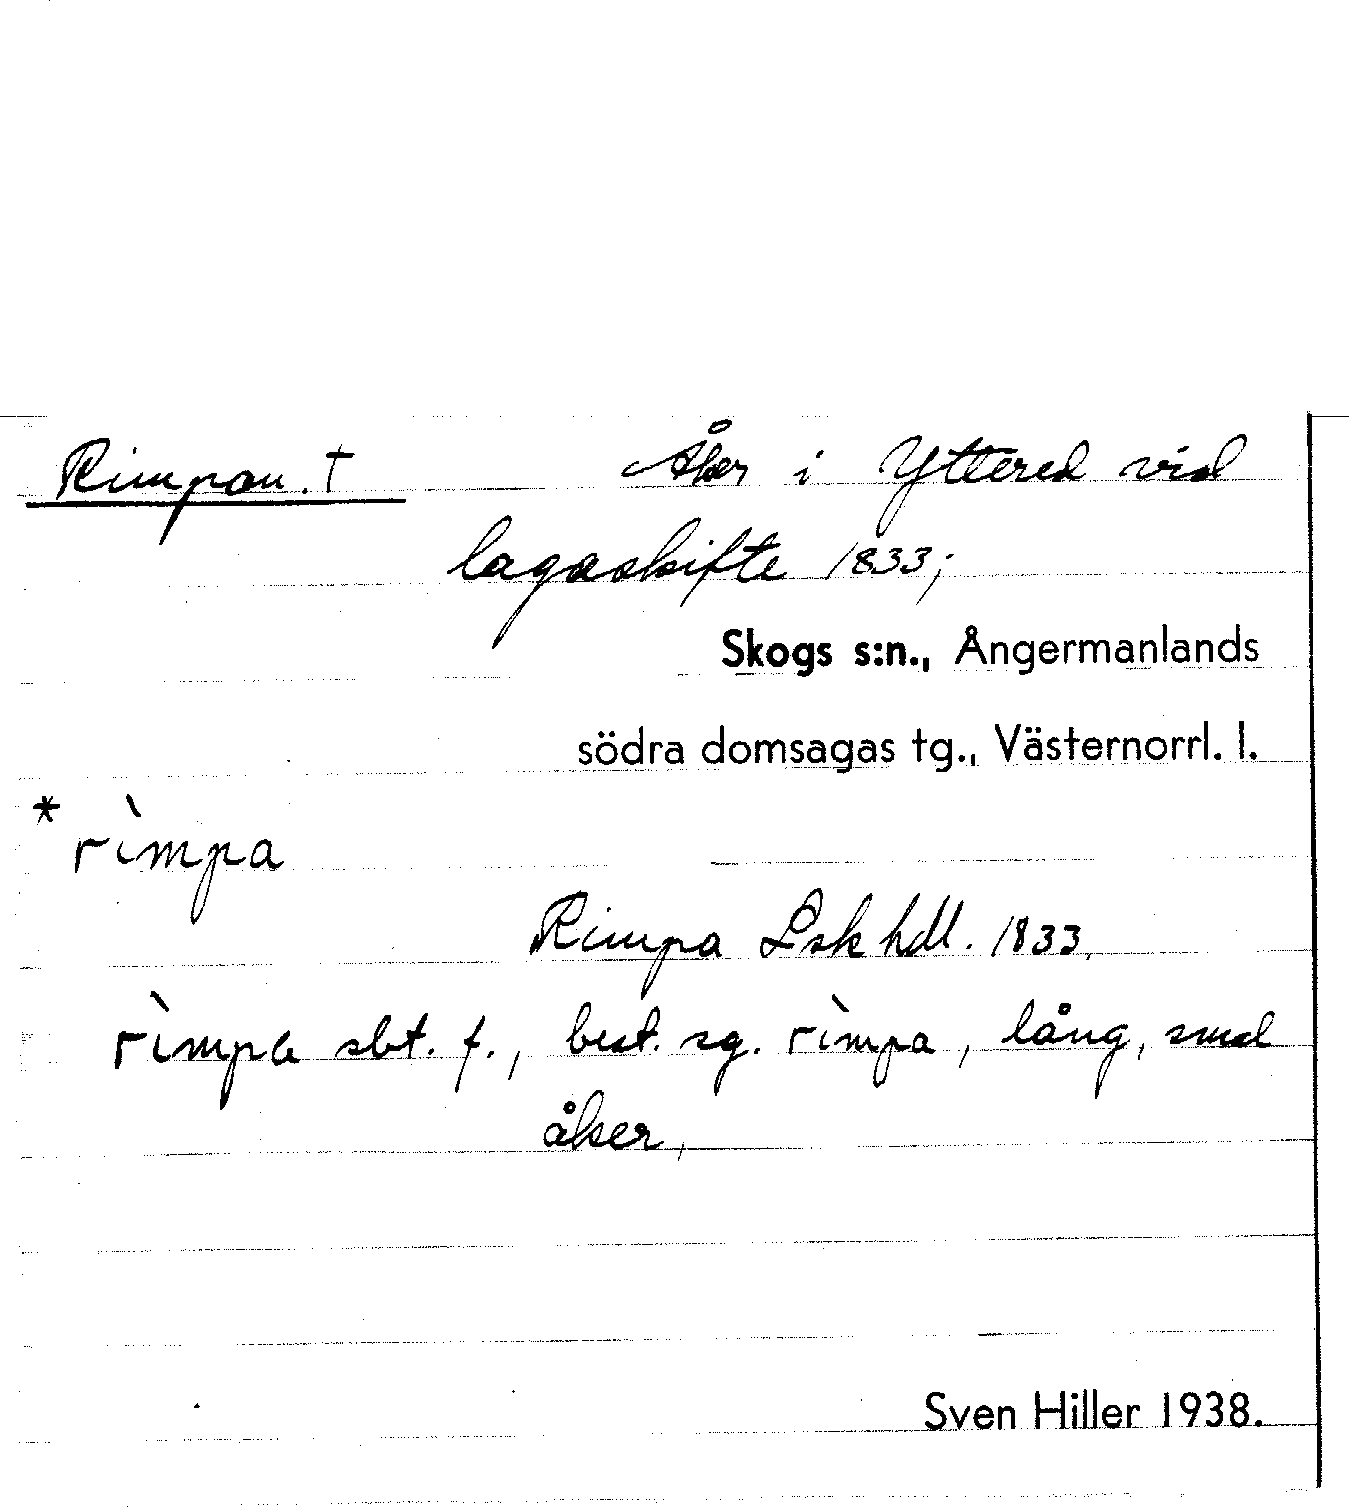 Rimpan. † Åker i Yttered vid
lagaskifte 1833;
Skogs s:n., Ångermanlands
södra domsagas tg., Västernorrl. l.
* rìmpa
Rimpa Lsk hdl. 1833,
rìmpa sbt. f., best. sg. rìmpa, lång, smal
åker,
Sven Hiller 1938.